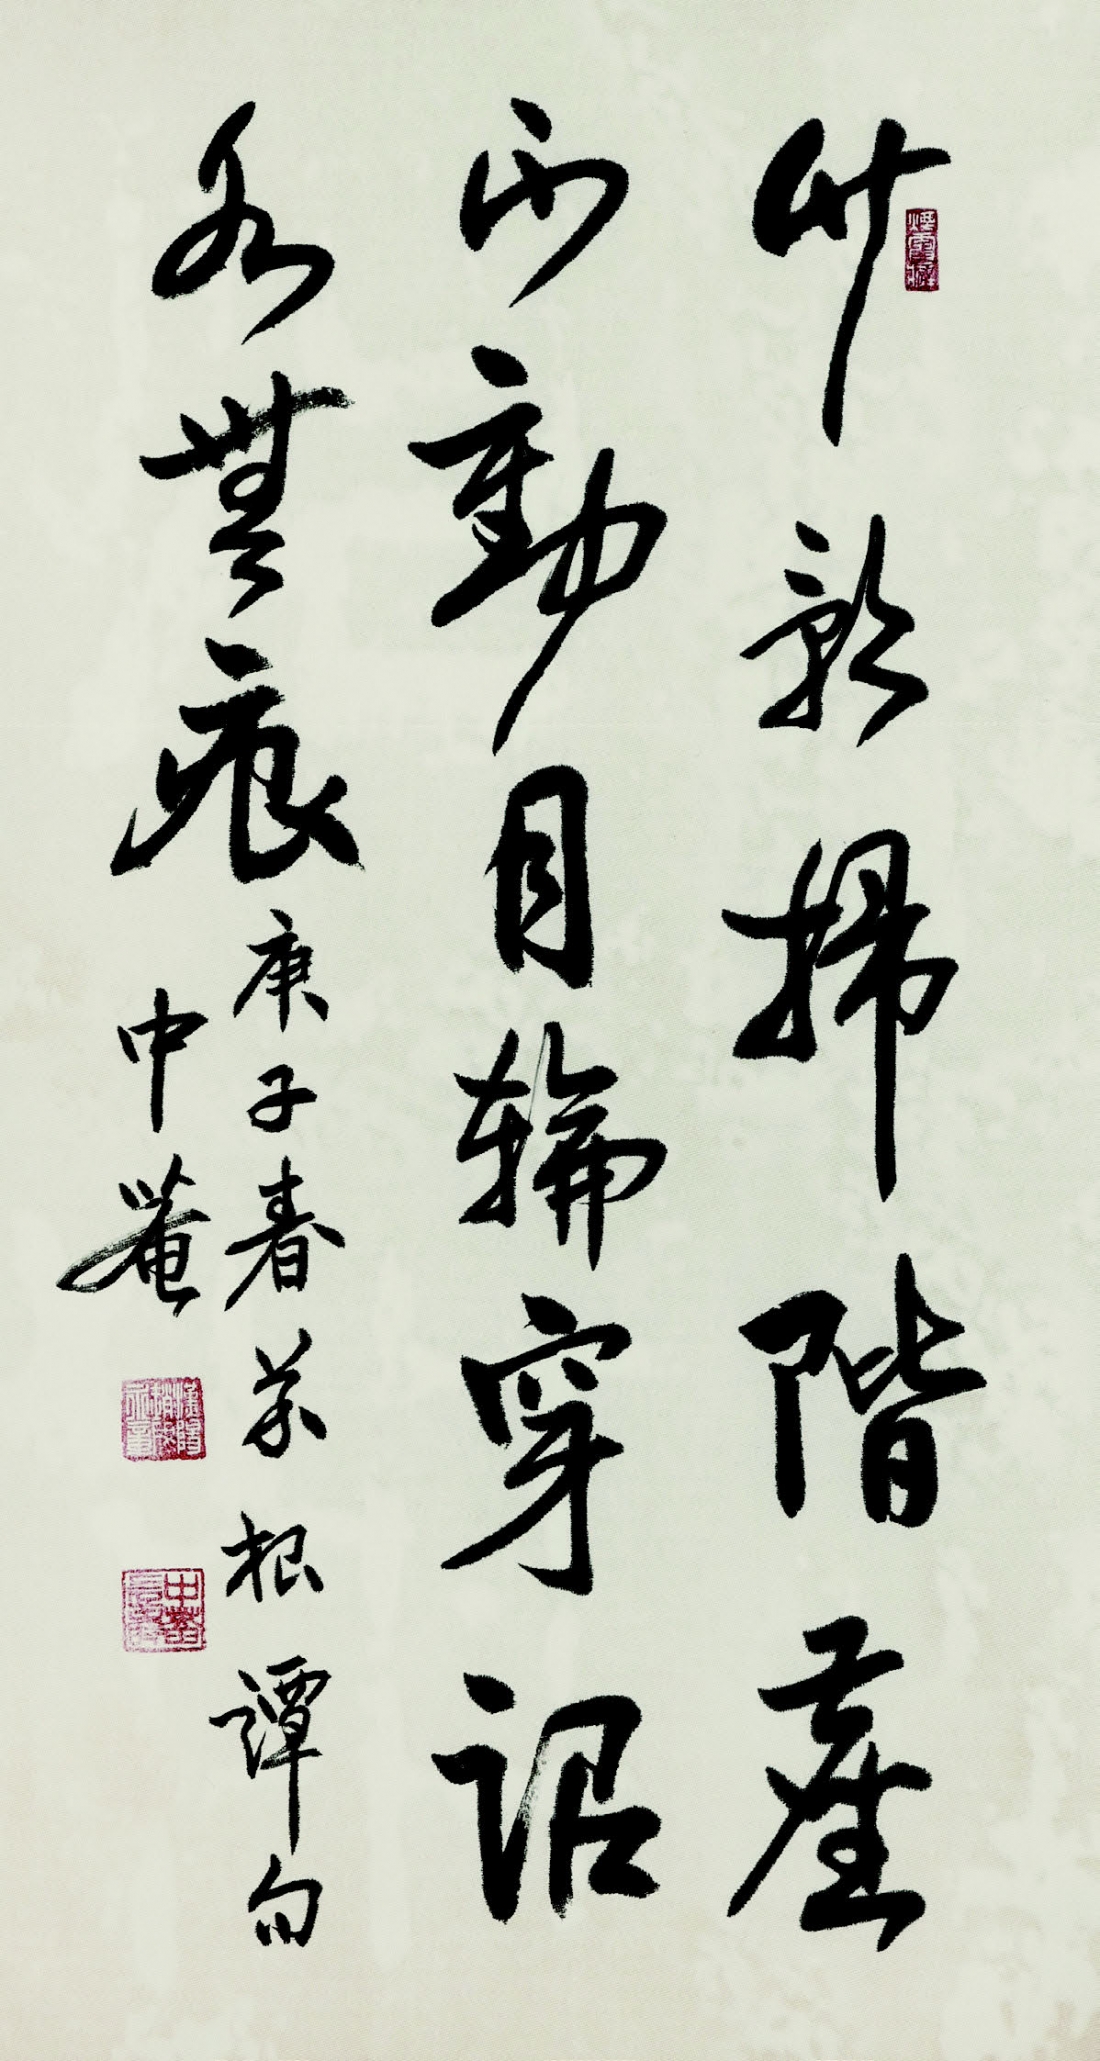 竹影掃階塵
不動月輪穿沼
水無痕
庚子春菜根譚句
中菴